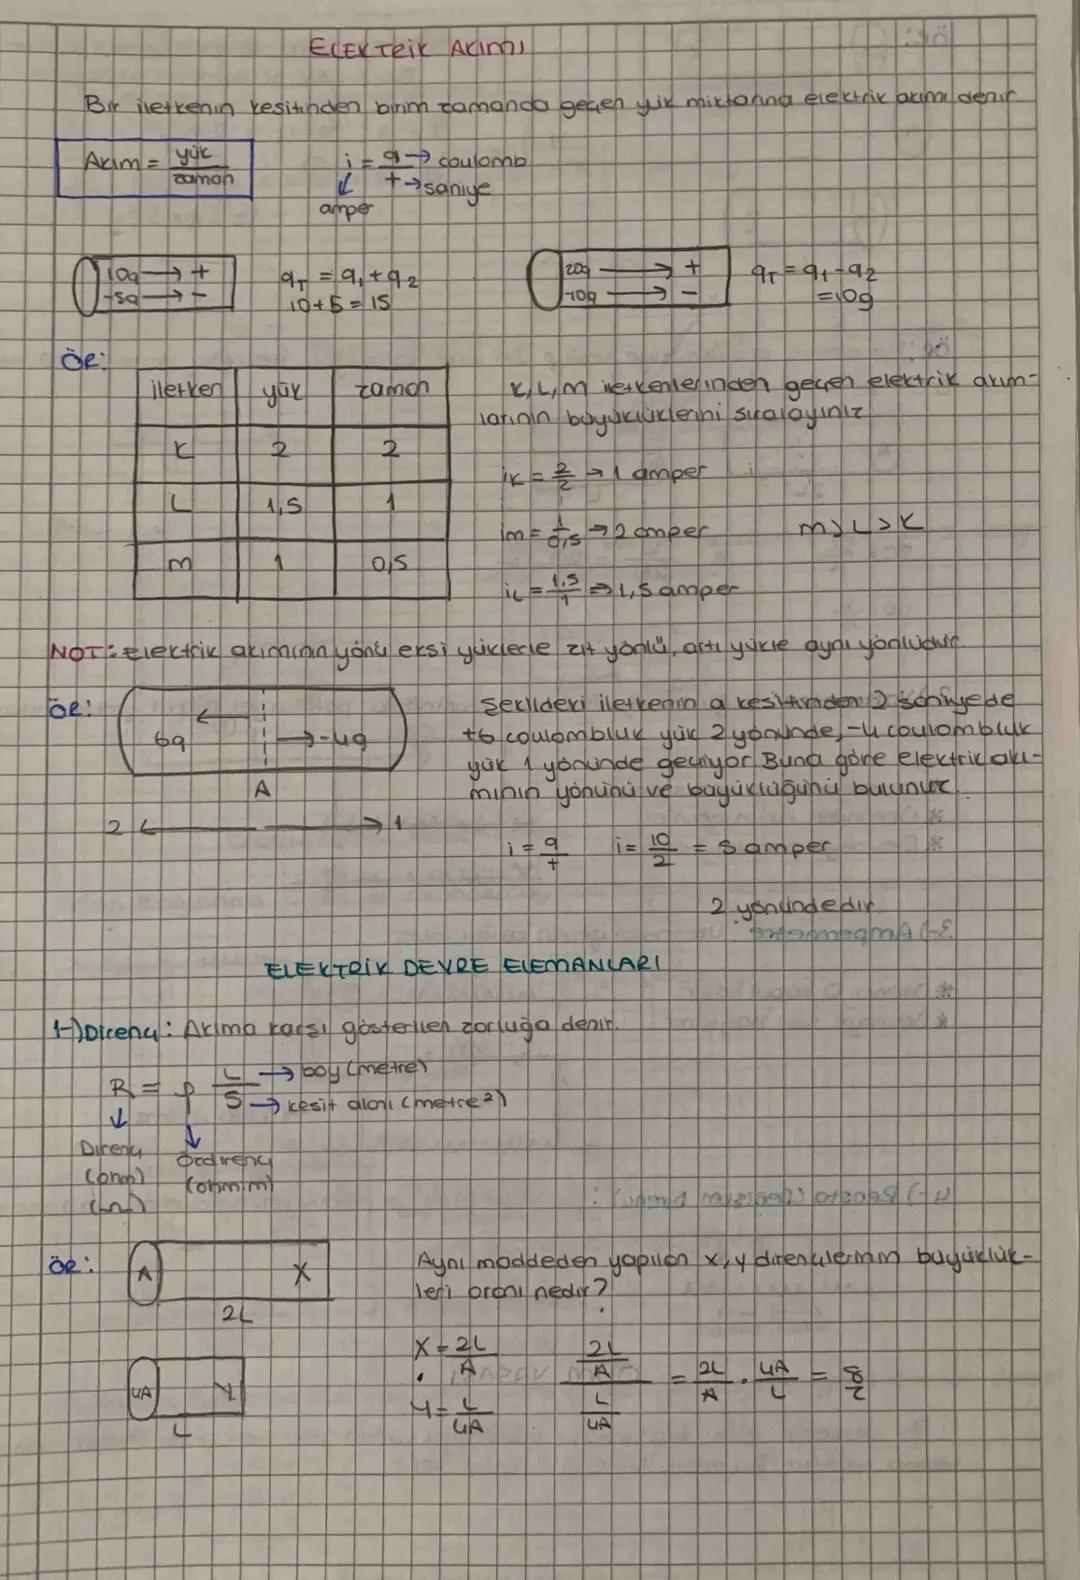 ELEKTRİK AKIMI
Bir iletkenin kesitinden birim zamanda geçen yük miktarına elektrik akımı denir
Akım = yük / zaman
i = q → coulomb
t → saniye
amper
10q → +
-5q → -
qT = q1 + q2
10+5=15
20q → +
-10q → -
qT = q1 - q2
=10q
ÖR:
iletken yük zaman
K 2 2
L 1,5 1
M 1 0,5
K, L, M iletkenlerinden geçen elektrik akım-
larının büyüklüklerini sıralayınız
iK = 2/2 → 1 amper
im = 1/0,5 → 2 amper
M > L > K
iL = 1,5/1 ⇒ 1,5 amper
NOT: Elektrik akımının yönü eksi yüklerle zıt yönlü, artı yükle aynı yönlüdür.
ÖR:
6q
→ -4q
A
2 ← → 1
Şekildeki iletkenin a kesitinden 2 saniyede
+6 coulombluk yük 2 yönünde, -4 coulombluk
yük 1 yönünde geçiyor. Buna göre elektrik akı-
mının yönünü ve büyüklüğünü bulunuz.
i = q/t i = 10/2 = 5 amper
2 yönündedir
ELEKTRİK DEVRE ELEMANLARI
1-) Direnç: Akıma karşı gösterilen zorluğa denir.
R = ρ L/S
L → boy (metre)
S → kesit alanı (metre²)
Direnç
(ohm)
(Ω)
Özdirenç
(ohm.m)
ÖR:
A X
2L
4A Y
L
Aynı maddeden yapılan x, y dirençlerinin büyüklük-
leri oranı nedir?
X = 2L/A
Y = L/4A
2L/A / L/4A = 2L/A . 4A/L = 8/2